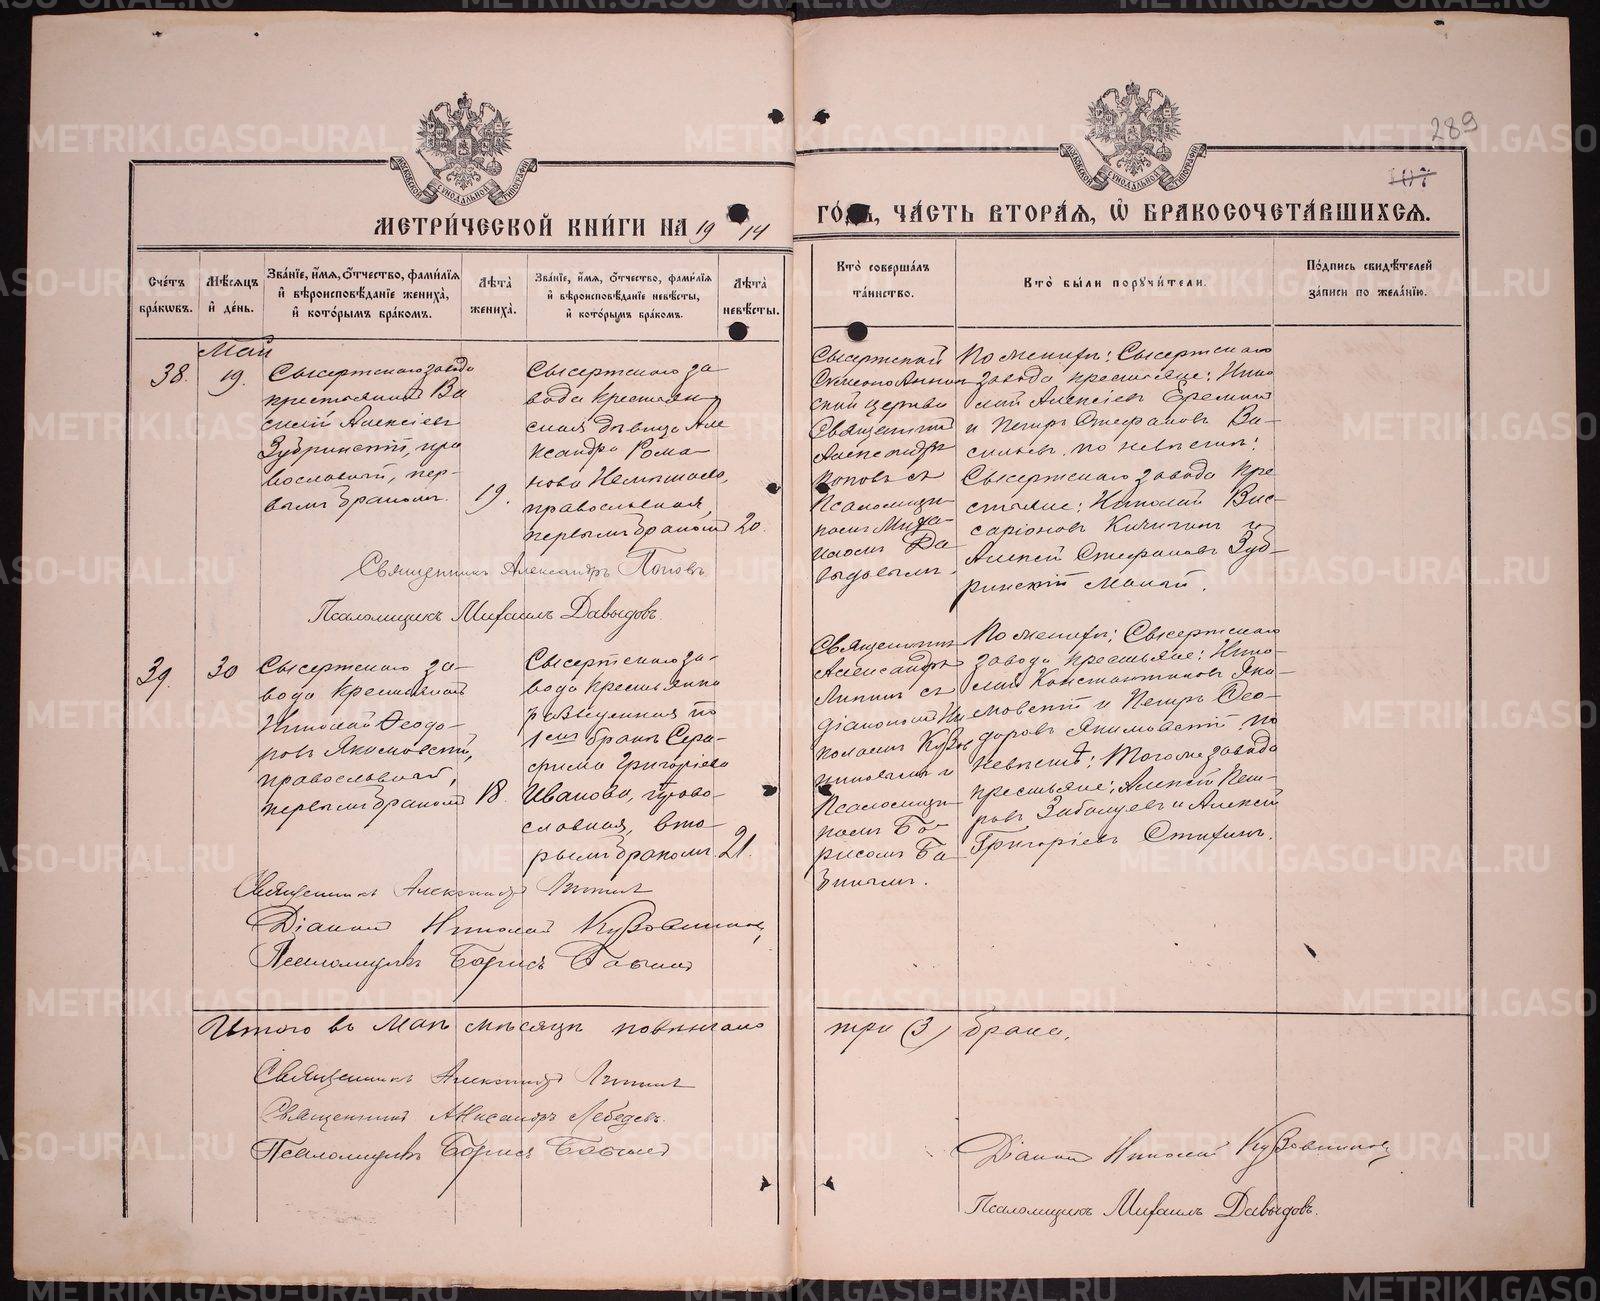 289
107
МОСКОВСКОЙ СѴНОДАЛЬНОЙ ТИПОГРАФІИ
МОСКОВСКОЙ СѴНОДАЛЬНОЙ ТИПОГРАФІИ
МЕТРИ́ЧЕСКОЙ КНИ́ГИ НА 1914
ГО́ДЪ, ЧА́СТЬ ВТОРА́Я, Ѡ҆ БРАКОСОЧЕТА́ВШИХСЯ.
Сче́тъ бра́кѡвъ.
Мѣ́сяцъ и҆ де́нь.
Зва́нїе, и҆́мя, ѻ҆́тчество, фами́лїя и҆ вѣроисповѣ́данїе жениха̀, и҆ кото́рымъ бра́комъ.
Лѣта̀ жениха̀.
Зва́нїе, и҆́мя, ѻ҆́тчество, фами́лїя и҆ вѣроисповѣ́данїе невѣ́сты, и҆ кото́рымъ бра́комъ.
Лѣта̀ невѣ́сты.
Кто̀ соверша́лъ та́инство.
Кто̀ бы́ли порꙋчи́тели.
По́дпись свидѣ́телей за́писи по жела́нїю.
38.
Май
19.
Сысертскаго завода
крестьянинъ Ва
силій Алексіевъ
Зубринскій, пра
вославный, пер-
вымъ бракомъ.
19.
Сысертскаго за
вода крестьян
ская дѣвица Але
ксандра Рома-
нова
православная,
первымъ бракомъ
20.
Сысертской
Симеоно Аннин
ской церкви
Священникъ
Александръ
Поповъ съ
Псаломщи-
комъ Миха-
иломъ Да-
выдовымъ.
По женихѣ: Сысертскаго
завода крестьяне: Нико
лай Алексіевъ Еремин
и Петръ Стефановъ Ва-
сильевъ. по невѣстѣ:
Сысертскаго завода кре
стьяне: Николай Вис-
саріоновъ Кичигинъ и
Алексій Стефановъ Зуб-
ринскій
Священникъ Александръ Поповъ
Псаломщикъ Михаилъ Давыдовъ.
39.
30
Сысертскаго за-
вода крестьянинъ
Николай Ѳеодо-
ровъ Якимовскій,
православный,
первымъ бракомъ
18.
Сысертскаго за-
вода крестьянка
разведенная по
1ему браку Сера-
фима Григоріева
Иванова, право-
славная, вто-
рымъ бракомъ
21.
Священникъ
Александръ
съ
діакономъ Ни
колаемъ Кузов
никовымъ и
Псаломщи-
комъ Бо-
рисомъ Ба
По женихѣ: Сысертскаго
завода крестьяне: Нико-
лай Константиновъ Яки-
мовскій и Петръ Ѳео-
доровъ Якимовскій. по
невѣстѣ: Тогоже завода
крестьяне: Алексій Пет-
ровъ и Алексій
Григоріевъ
Священникъ Александръ
Діаконъ Николай Кузовниковъ
Псаломщикъ Борисъ
Итого въ Маѣ мѣсяцѣ повѣнчано
три (3) брака.
Священникъ Александръ
Священникъ Александръ Лебедевъ.
Псаломщикъ Борисъ
Діаконъ Николай Кузовниковъ
Псаломщикъ Михаилъ Давыдовъ.
METRIKI.GASO-URAL.RU